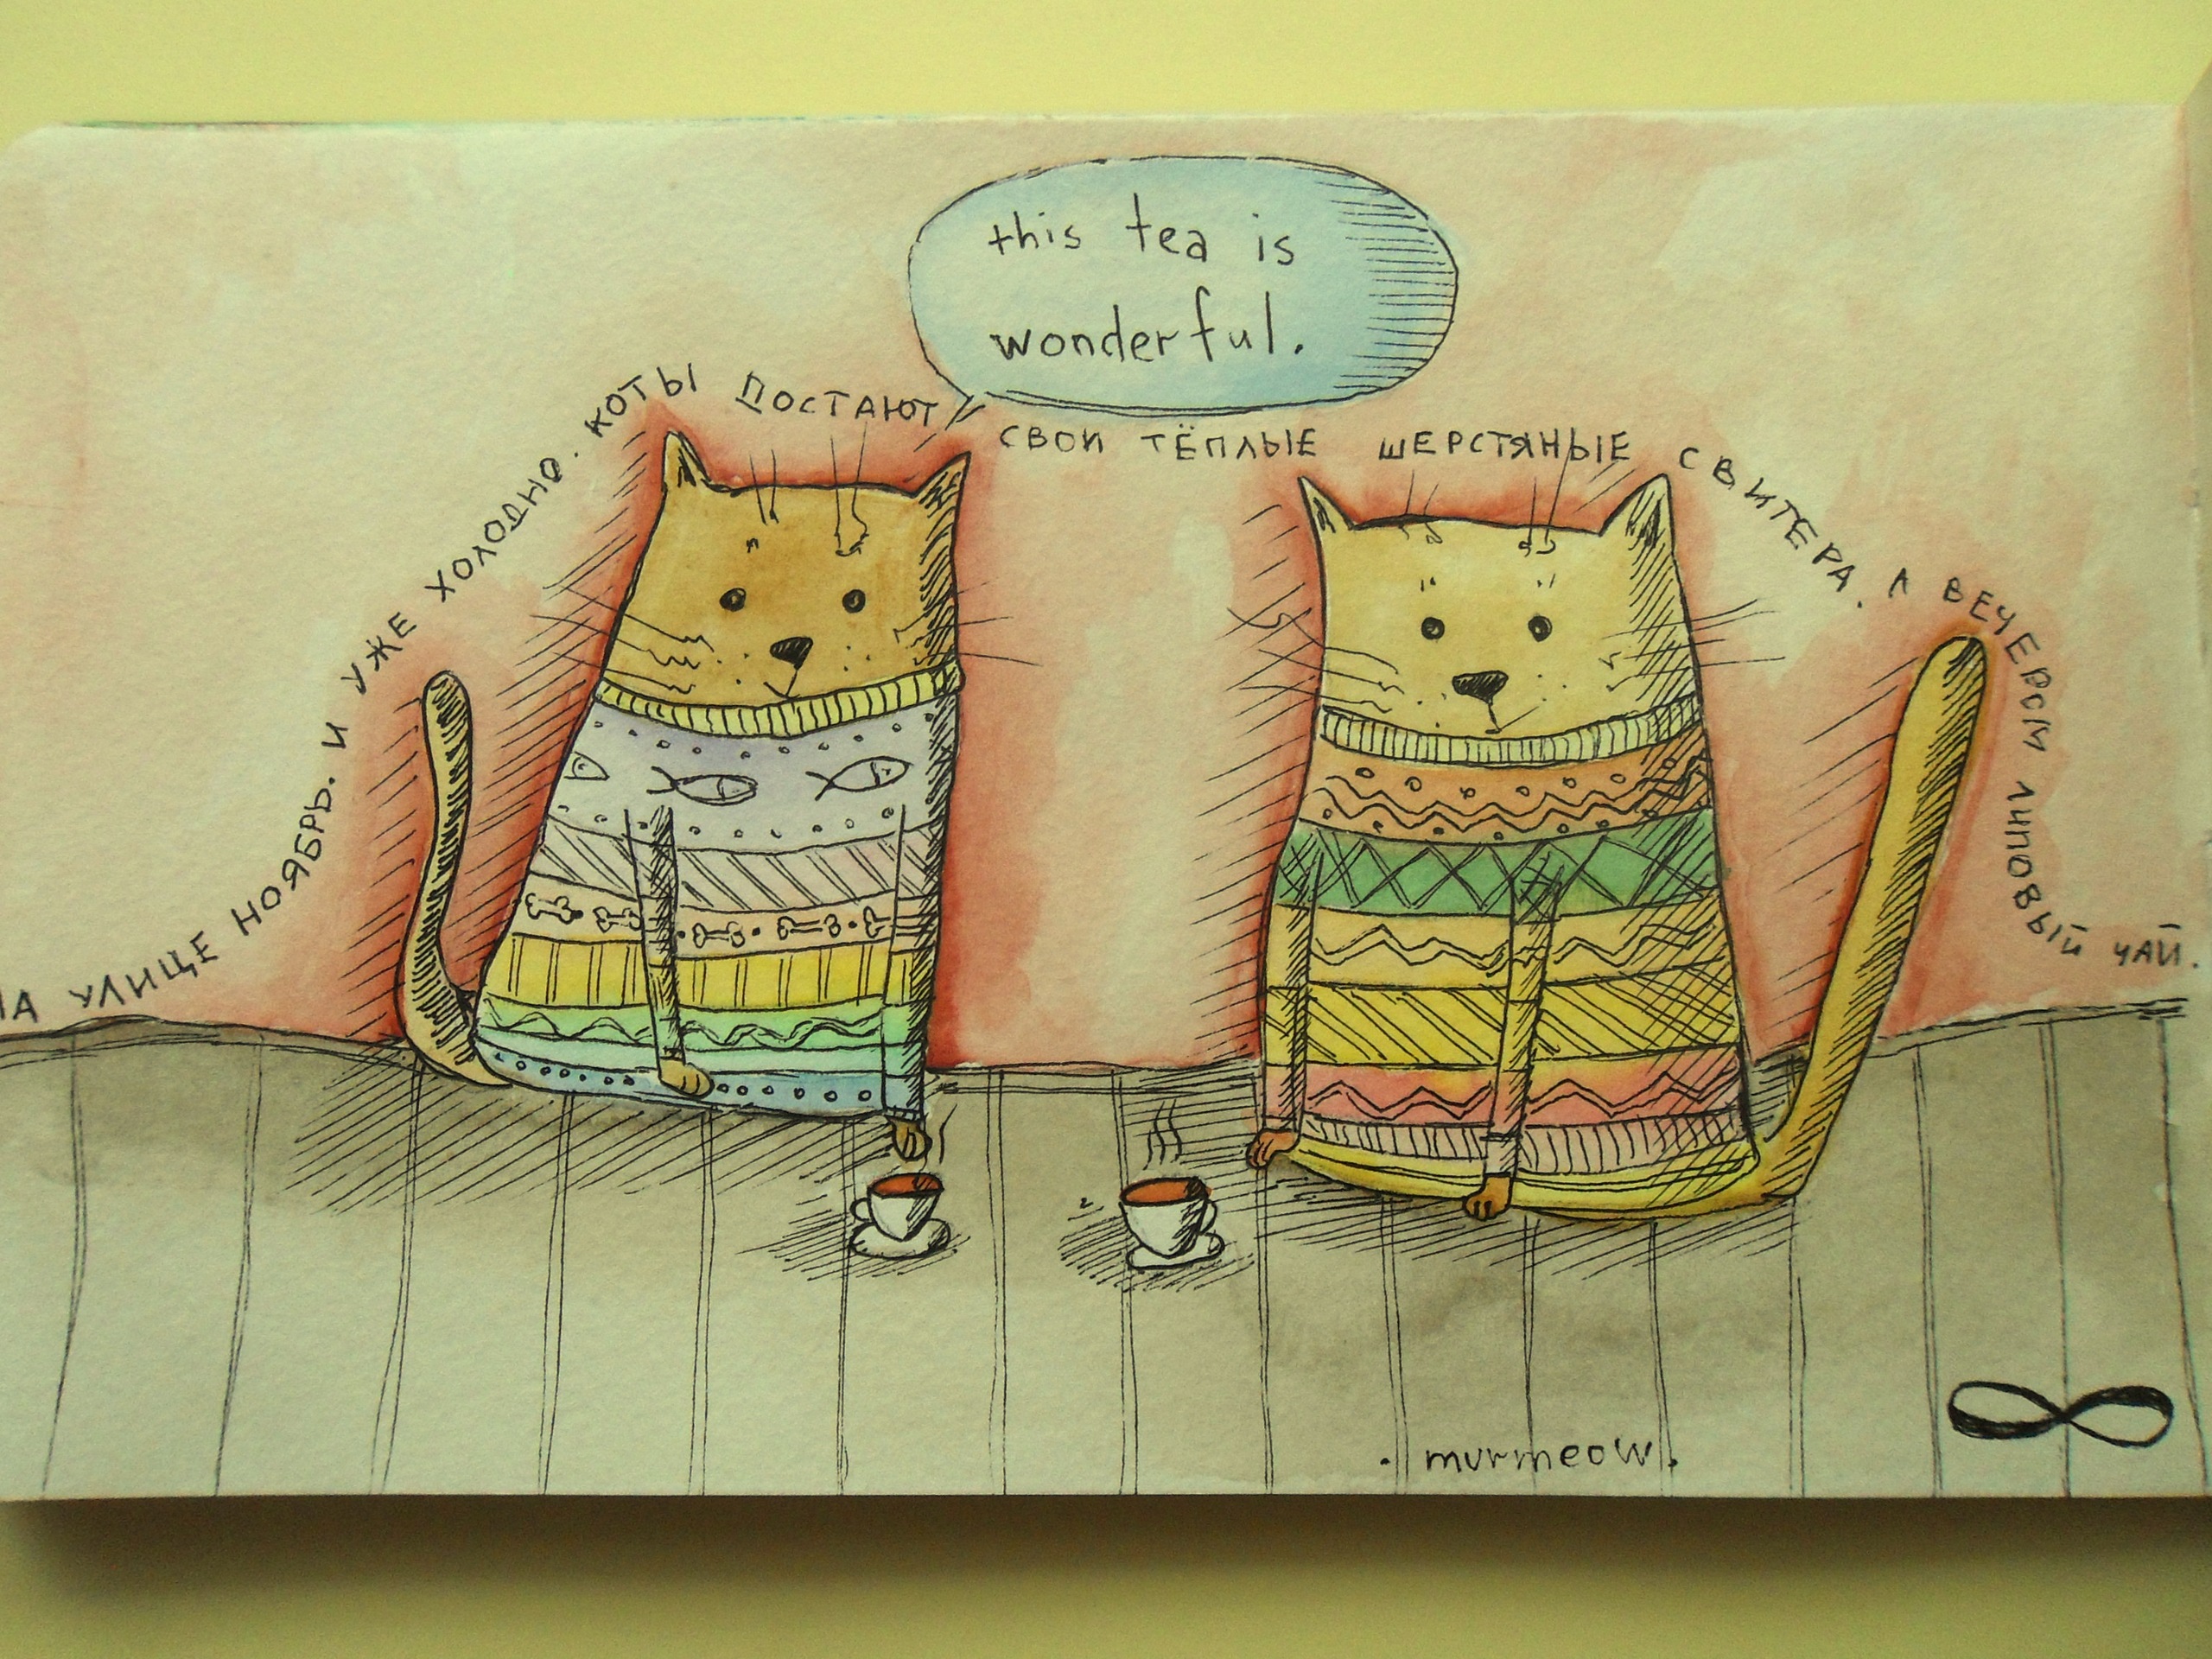 this tea is
wonderful.
НА УЛИЦЕ НОЯБРЬ. И УЖЕ ХОЛОДНО. КОТЫ ДОСТАЮТ СВОИ ТЁПЛЫЕ ШЕРСТЯНЫЕ СВИТЕРА. А ВЕЧЕРОМ ЛИПОВЫЙ ЧАЙ.
. murmeow.